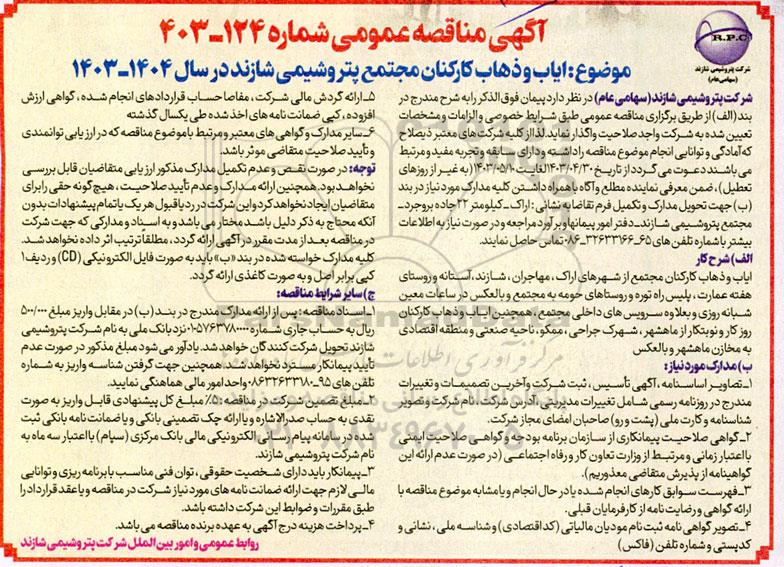 آگهی مناقصه عمومی شماره ۱۲۴-۴۰۳
موضوع: ایاب و ذهاب کارکنان مجتمع پتروشیمی شازند در سال ۱۴۰۴-۱۴۰۳
R.P.C
شرکت پتروشیمی شازند
(سهامی عام)
شرکت پتروشیمی شازند (سهامی عام) در نظر دارد پیمان فوق الذکر را به شرح مندرج در
بند (الف) از طریق برگزاری مناقصه عمومی طبق شرایط خصوصی و الزامات و مشخصات
تعیین شده به شرکت واجد صلاحیت واگذار نماید. لذا از کلیه شرکت های معتبر ذیصلاح
که آمادگی و توانایی انجام موضوع مناقصه را داشته و دارای سابقه و تجربه مفید و مرتبط
می باشند دعوت می گردد از تاریخ ۱۴۰۳/۰۴/۳۰ لغایت ۱۴۰۳/۰۵/۱۰ (به غیر از روزهای
تعطیل)، ضمن معرفی نماینده مطلع و آگاه با همراه داشتن کلیه مدارک مورد نیاز در بند
(ب) جهت تحویل مدارک و تکمیل فرم تقاضا به نشانی: اراک-کیلومتر ۲۲ جاده بروجرد-
مجتمع پتروشیمی شازند-دفتر امور پیمانها و برآورد مراجعه و در صورت نیاز به اطلاعات
بیشتر با شماره تلفن های ۶۵-۳۲۶۳۳۱۶۶-۰۸۶ تماس حاصل نمایند.
الف) شرح کار
ایاب و ذهاب کارکنان مجتمع از شهرهای اراک، مهاجران، شازند، آستانه و روستای
هفته عمارت، پلیس راه توره و روستاهای حومه به مجتمع و بالعکس در ساعات معین
شبانه روزی و بعلاوه سرویس های داخلی مجتمع، همچنین ایاب و ذهاب کارکنان
روز کار و نوبتکار از ماهشهر، شهرک جراحی، ممکو، ناحیه صنعتی و منطقه اقتصادی
به مخازن ماهشهر و بالعکس
ب) مدارک مورد نیاز:
۱-تصاویر اساسنامه، آگهی تأسیس، ثبت شرکت و آخرین تصمیمات و تغییرات
مندرج در روزنامه رسمی شامل تغییرات مدیریتی، آدرس شرکت، نام شرکت و تصویر
شناسنامه و کارت ملی (پشت و رو) صاحبان امضای مجاز شرکت.
۲-گواهی صلاحیت پیمانکاری از سازمان برنامه بودجه و گواهی صلاحیت ایمنی
با اعتبار زمانی و مرتبط از وزارت تعاون کار و رفاه اجتماعی (در صورت عدم ارائه این
گواهینامه از پذیرش متقاضی معذوریم).
۳-فهرست سوابق کارهای انجام شده یا در حال انجام و یا مشابه موضوع مناقصه با
ارائه گواهی و رضایت نامه از کارفرمایان قبلی.
۴-تصویر گواهی نامه ثبت نام مودیان مالیاتی (کد اقتصادی) و شناسه ملی، نشانی و
کدپستی و شماره تلفن (فاکس)
۵-ارائه گردش مالی شرکت، مفاصا حساب قراردادهای انجام شده، گواهی ارزش
افزوده، کپی ضمانت نامه های اخذ شده طی یکسال گذشته
۶-سایر مدارک و گواهی های معتبر و مرتبط با موضوع مناقصه که در ارزیابی توانمندی
و تأیید صلاحیت متقاضی موثر باشد.
توجه: در صورت نقص و عدم تکمیل مدارک مذکور ارزیابی متقاضیان قابل بررسی
نخواهد بود. همچنین ارائه مدارک و عدم تأیید صلاحیت، هیچ گونه حقی را برای
متقاضیان ایجاد نخواهد کرد و این شرکت در رد یا قبول هر یک یا تمام پیشنهادات بدون
آنکه محتاج به ذکر دلیل باشد مختار می باشد و به اسناد و مدارکی که جهت شرکت
در مناقصه بعد از مدت مقرر در آگهی ارائه گردد، مطلقا ترتیب اثر داده نخواهد شد.
کلیه مدارک خواسته شده در بند «ب» باید به صورت فایل الکترونیکی (CD) و ردیف ۱
کپی برابر اصل و به صورت کاغذی ارائه گردد.
ج) سایر شرایط مناقصه:
۱-اسناد مناقصه: پس از ارائه مدارک مندرج در بند (ب) در مقابل واریز مبلغ ۵۰۰/۰۰۰
ریال به حساب جاری شماره ۰۱۰۵۷۶۳۷۸۰۰۰۰ نزد بانک ملی به نام شرکت پتروشیمی
شازند تحویل شرکت کنندگان خواهد شد. یادآور می شود مبلغ مذکور در صورت عدم
تأیید پیمانکار مسترد نخواهد شد. همچنین جهت گرفتن شناسه واریز به شماره
تلفن های ۹۵-۰۸۶۳۲۶۳۳۱۸۰ واحد امور مالی هماهنگی نمایید.
۲-مبلغ تضمین شرکت در مناقصه: ۵٪ مبلغ کل پیشنهادی قابل واریز به صورت
نقدی به حساب صدرالاشاره و یا ارائه چک تضمینی بانکی و یا ضمانت نامه بانکی ثبت
شده در سامانه پیام رسان الکترونیکی مالی بانک مرکزی (سپام) با اعتبار سه ماه به
نام شرکت پتروشیمی شازند.
۳-پیمانکار باید دارای شخصیت حقوقی، توان فنی مناسب با برنامه ریزی و توانایی
مالی لازم جهت ارائه ضمانت نامه های مورد نیاز شرکت در مناقصه و یا عقد قرارداد را
طبق مقررات و ضوابط این شرکت داشته باشد.
۴-پرداخت هزینه درج آگهی به عهده برنده مناقصه می باشد.
روابط عمومی و امور بین الملل شرکت پتروشیمی شازند